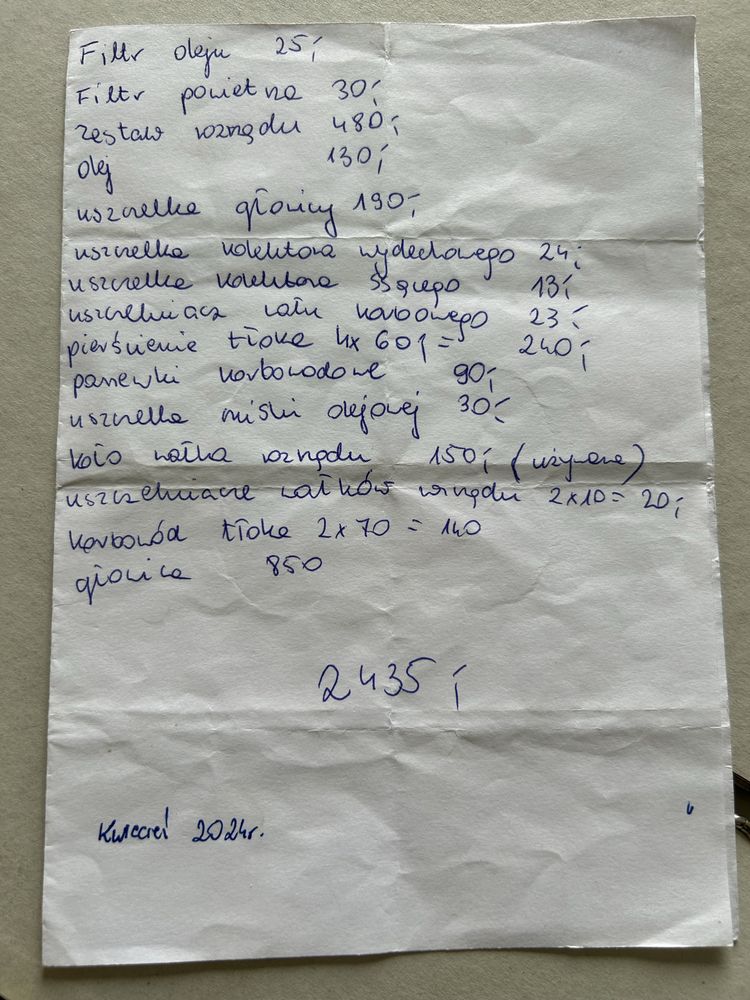 Filtr oleju 25,-
Filtr powietrza 30,-
zestaw rozrządu 480,-
olej 130,-
uszczelka głowicy 190,-
uszczelka kolektora wydechowego 24,-
uszczelka kolektora ssącego 13,-
uszczelniacz wału korbowego 23,-
pierścienie tłoka 4x 60,- = 240,-
panewki korbowodowe 90,-
uszczelka miski olejowej 30,-
koło wałka rozrządu 150,- (używane)
uszczelniacze wałków rozrządu 2x10= 20,-
korbowód tłoka 2x70 = 140
głowica 850
2435,-
Kwiecień 2024r.